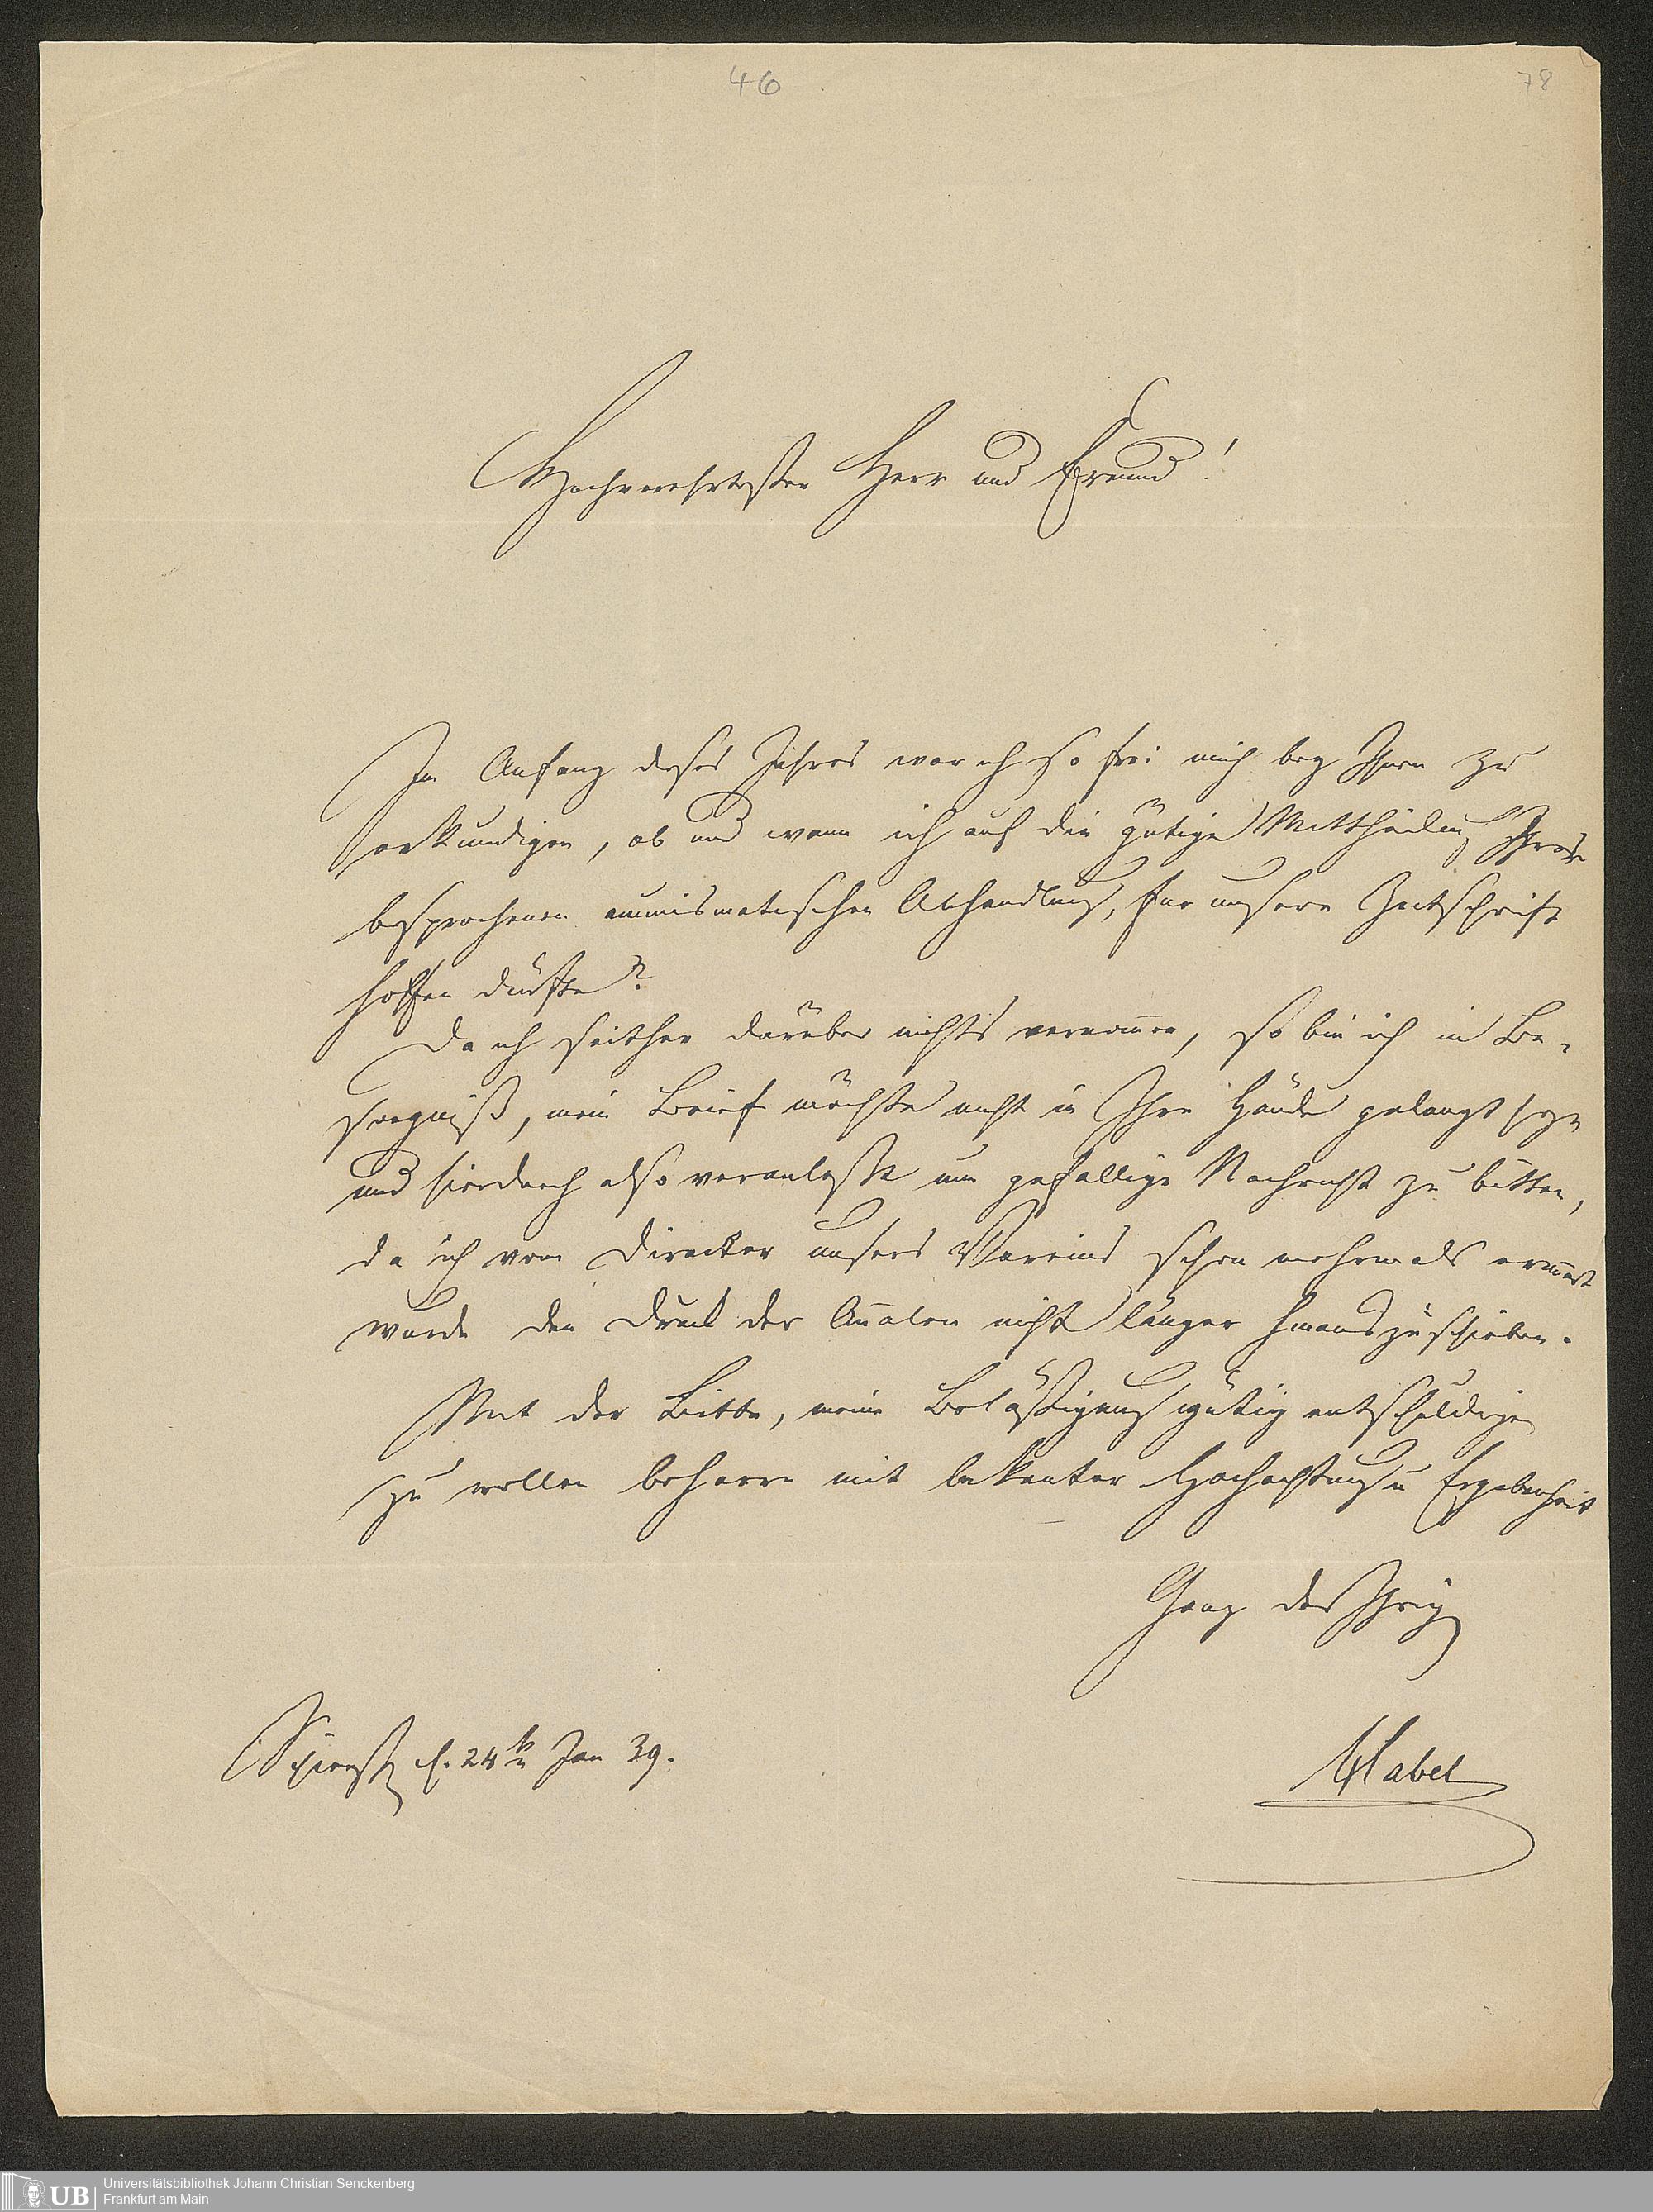 46
78
Hochverehrtester Herr und Freund!
Im Anfang dieses Jahres war ich so frei mich bey Ihnen zu
erkundigen, ob und wann ich auf die gütige Mittheilung Ihrer
besprochenen numismatischen Abhandlung, für unsere Zeitschrift
hoffen dürfte?
Da ich seither darüber nichts vernom̅en, so bin ich in Be-
sorgniß, mein Brief möchte nicht in Ihre Hände gelangt seyn
und hierdurch also veranlaßt um gefällige Nachricht zu bitten,
da ich vom Director unsers Vereins schon mehrmals
wurde den Druck der An̅alen nicht länger hinauszuschieben.
Mit der Bitte, meine Belästigung gütig entschuldigen
zu wollen beharre mit bekanter Hochachtung u Ergebenheit
Ganz der Ihrig
Schierst. d. 24ten Jan 39.
Habel
UB
Universitätsbibliothek Johann Christian Senckenberg
Frankfurt am Main